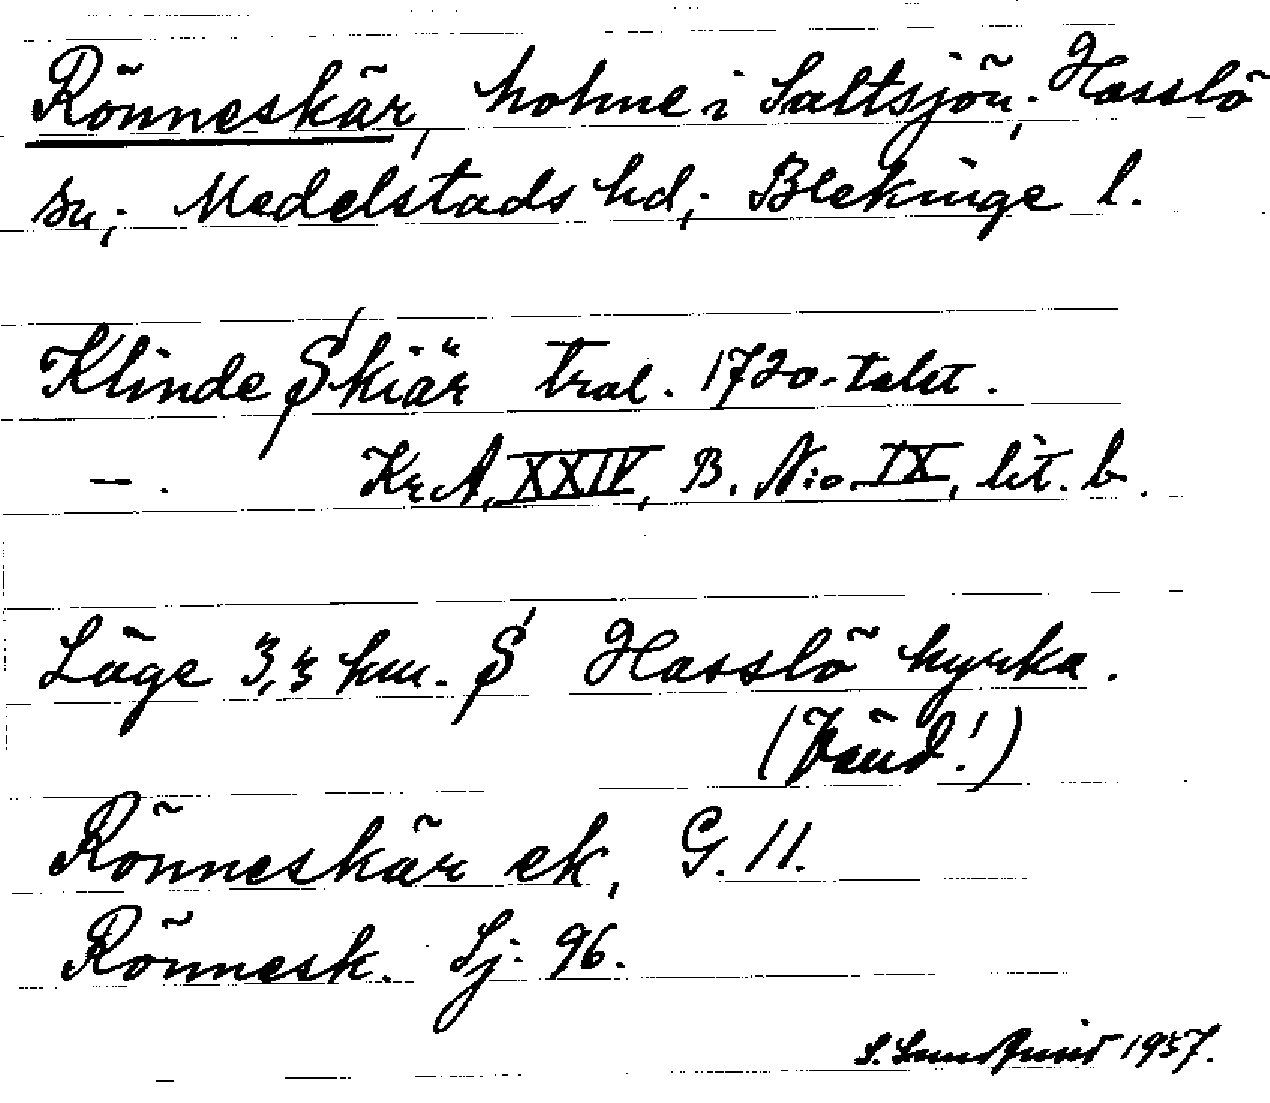 Rönneskär, holme i Saltsjön, Hasslö
sn, Medelstads hd, Blekinge l.
Klinde Skiär trol. 1720-talet.
—. KrA, XXIV, B. No. IX, lit. b.
Läge 3,3 km. S Hasslö kyrka.
(Vänd!)
Rönneskär ek, G. 11.
Rönnesk. Sj. 96.
S. 1957.